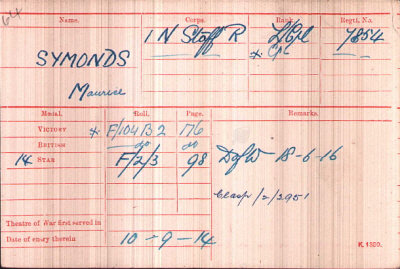 64
Name. Corps. Rank. Regtl. No.
SYMONDS 1 N Staff R L/Cpl 7854
* Cpl
Maurice
Medal. Roll. Page. Remarks.
VICTORY * F/104 B 2 176
BRITISH do do
14 STAR F/2/3 98 DofW 18-6-16
Clasp /2/3951
Theatre of War first served in
Date of entry therein 10-9-14 K. 1380.